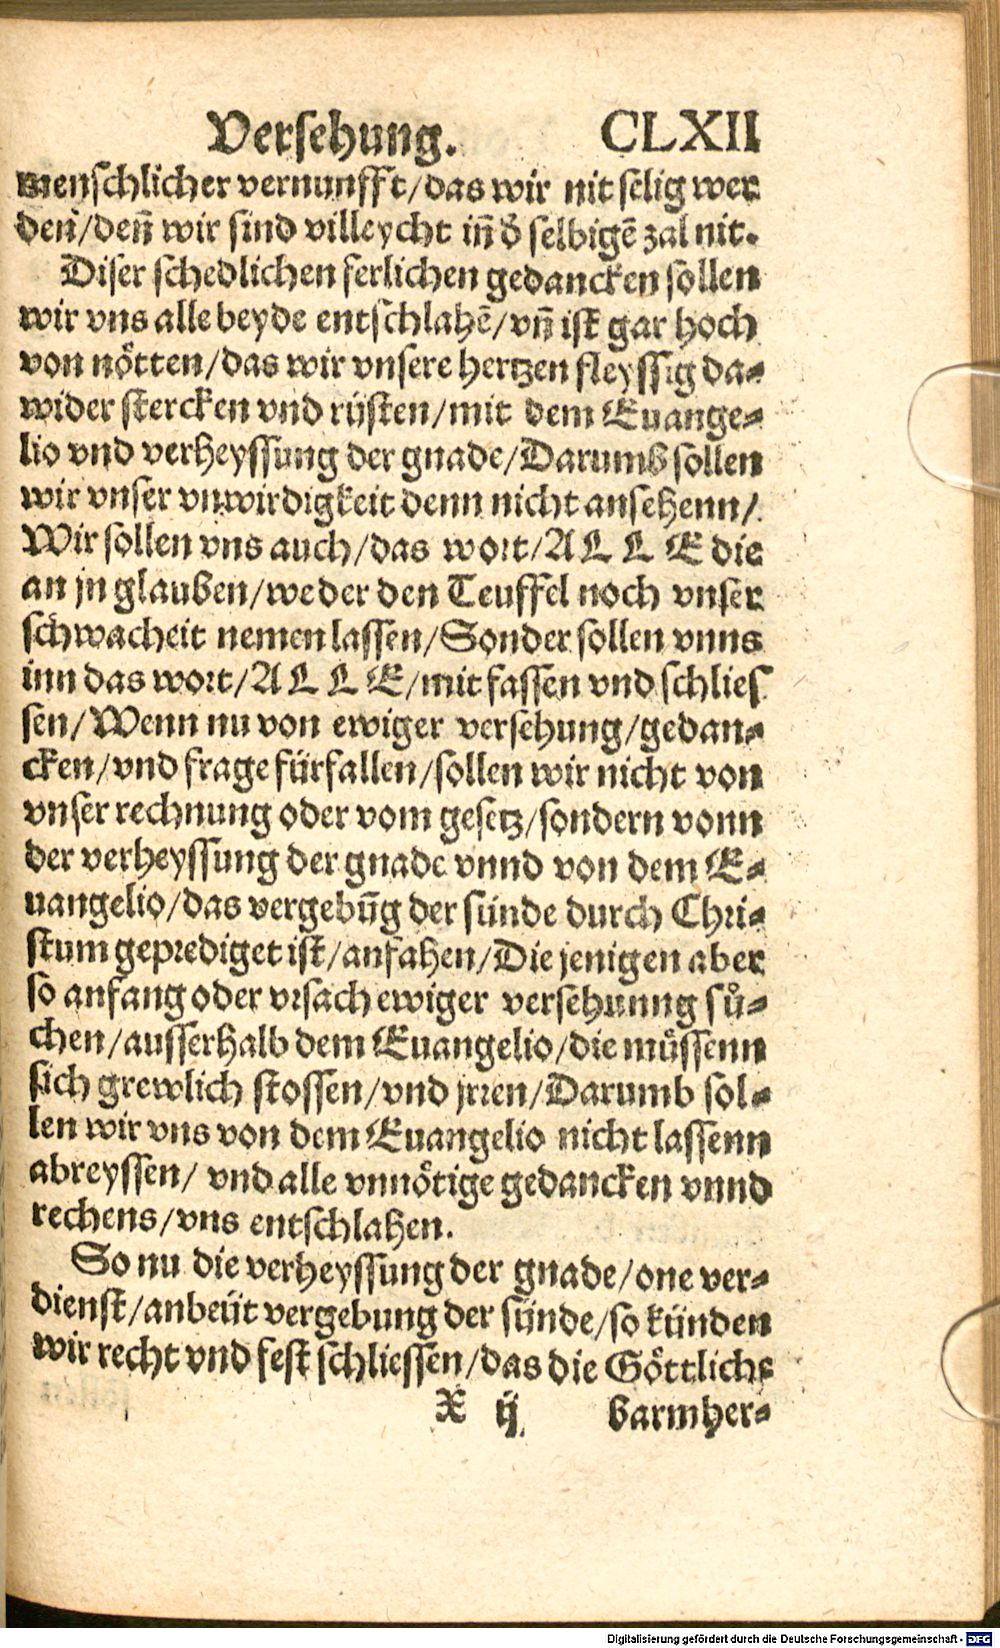 Versehung. CLXII
menschlicher vernunfft/das wir nit selig wer
den/deñ wir sind villeycht iñ d̕ selbigẽ zal nit.
Diser schedlichen ferlichen gedancken sollen
wir vns alle beyde entschlahẽ/vñ ist gar hoch
von nötten/das wir vnsere hertzen fleyssig da-
wider stercken vnd rüsten/mit dem Euange-
lio vnd verheyssung der gnade/Darumb sollen
wir vnser vnwirdigkeit denn nicht ansehenn/
Wir sollen vns auch/das wort/ALLE die
an jn glauben/weder den Teuffel noch vnser
schwacheit nemen lassen/Sonder sollen vnns
inn das wort/ALLE/mit fassen vnd schlies
sen/Wenn nu von ewiger versehung/gedan-
cken/vnd frage fürfallen/sollen wir nicht von
vnser rechnung oder vom gesetz/sondern vonn
der verheyssung der gnade vnnd von dem E-
uangelio/das vergebũg der sünde durch Chri-
stum geprediget ist/anfahen/Die jenigen aber
so anfang oder vrsach ewiger versehunng sů-
chen/ausserhalb dem Euangelio/die müssenn
sich grewlich stossen/vnd jrren/Darumb sol-
len wir vns von dem Euangelio nicht lassenn
abreyssen/ vnd alle vnnötige gedancken vnnd
rechens/vns entschlahen.
So nu die verheyssung der gnade/one ver-
dienst/anbeüt vergebung der sünde/so künden
wir recht vnd fest schliessen/das die Göttliche
X ij barmher-
Digitalisierung gefördert durch die Deutsche Forschungsgemeinschaft - DFG